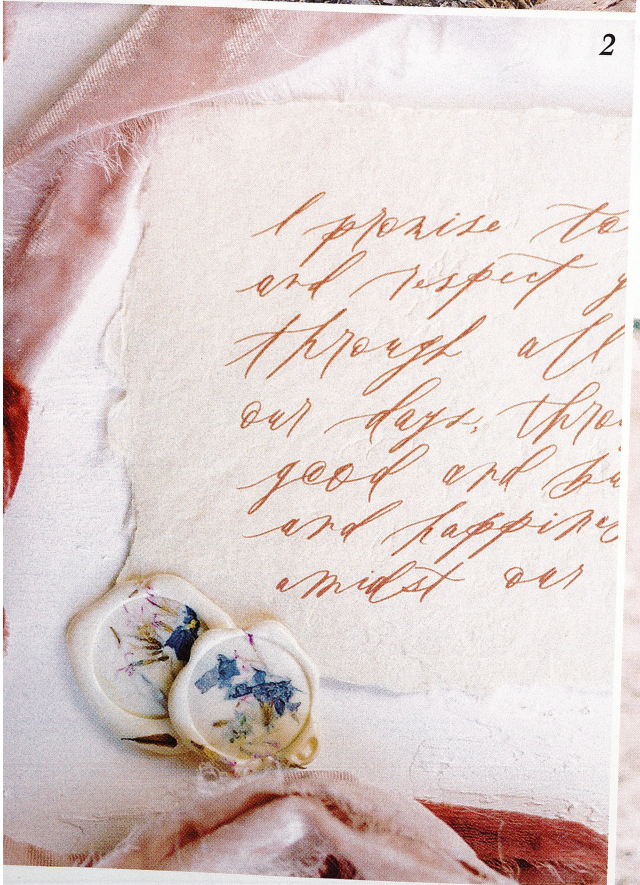 2
I promise to
and respect y
through all
our days, thro
good and ba
and happines
amidst our